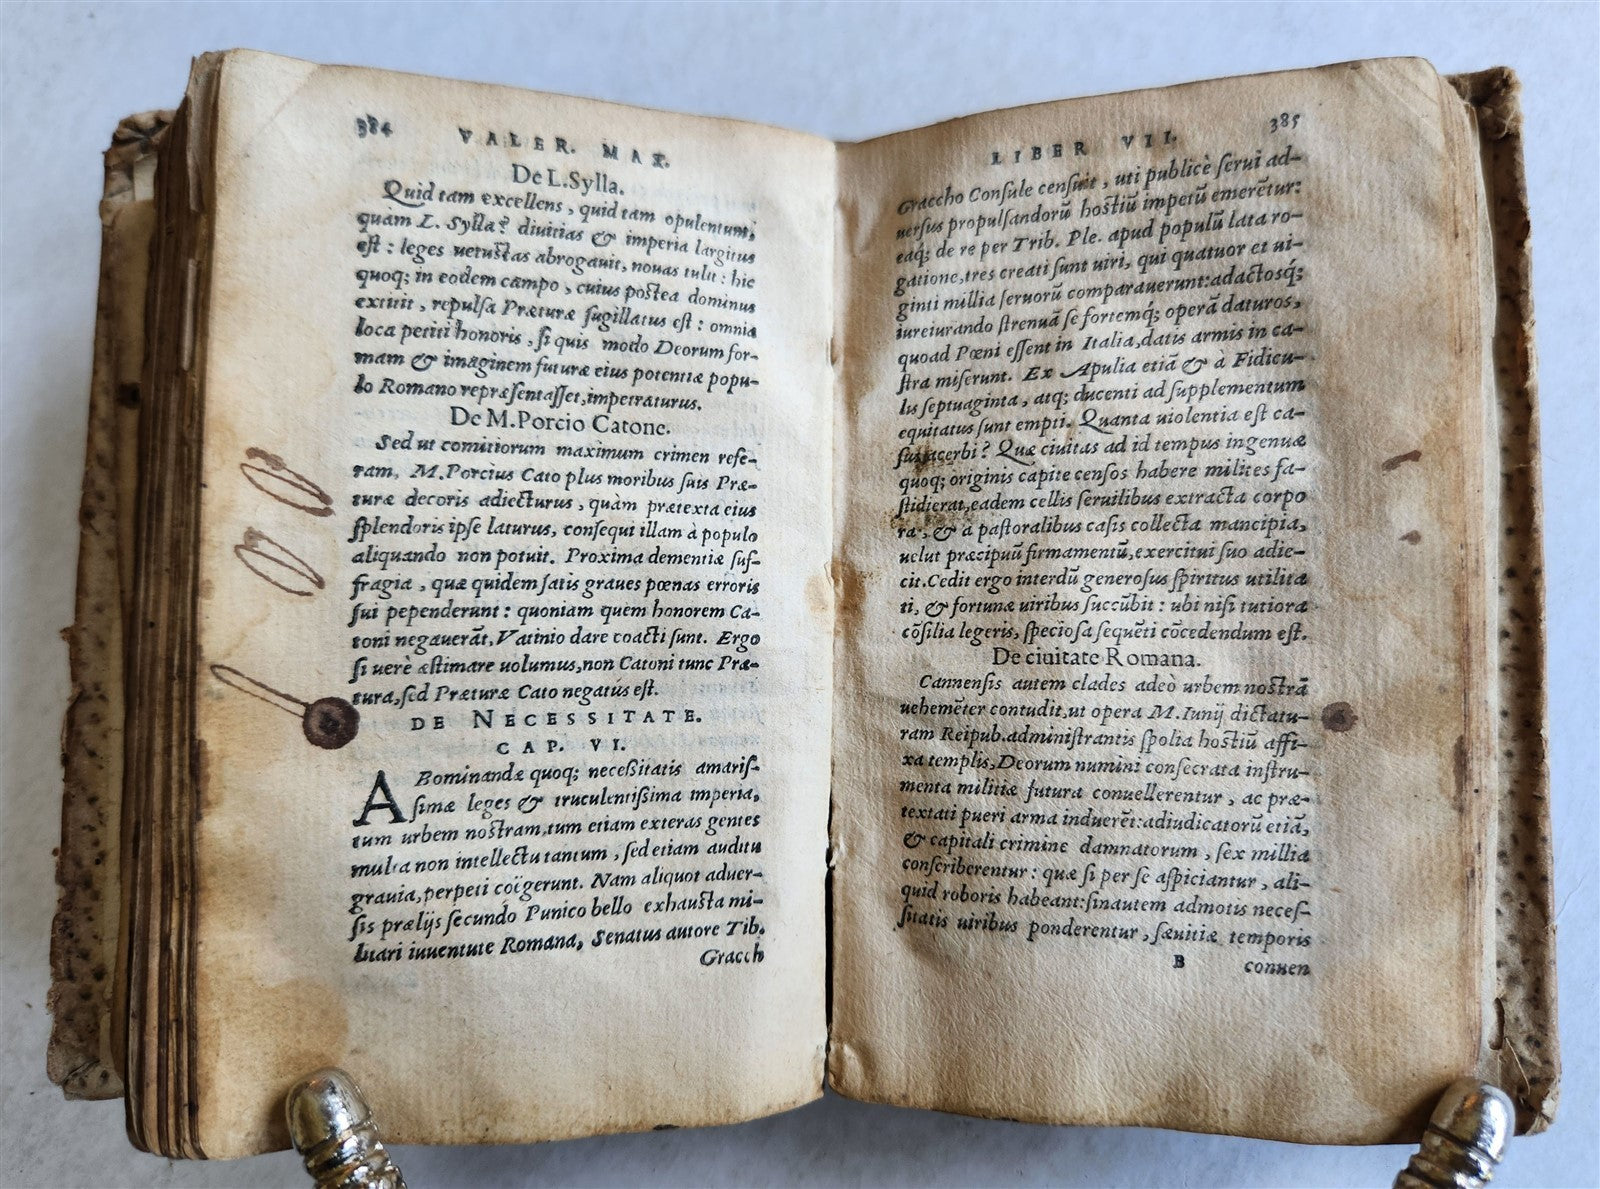 384
VALER. MAX.
De L. Sylla.
Quid tam excellens, quid tam opulentum,
quam L. Sylla? divitias & imperia largitus
est: leges uetustas abrogauit, nouas tulit: hic
quoq; in eodem campo, cuius postea dominus
extitit, repulsa Præturæ sugillatus est: omnia
loca petiti honoris, si quis modo Deorum for-
mam & imaginem futuræ eius potentiæ popu-
lo Romano repræsentasset, impetraturus.
De M. Porcio Catone.
Sed ut comitiorum maximum crimen refe-
ram, M. Porcius Cato plus moribus suis Præ-
turæ decoris adiecturus, quàm prætexta eius
splendoris ipse laturus, consequi illam à populo
aliquando non potuit. Proxima dementiæ suf-
fragia, quæ quidem satis graues pœnas erroris
sui pependerunt: quoniam quem honorem Ca-
toni negauerãt, Vatinio dare coacti sunt. Ergo
si uerè æstimare uolumus, non Catoni tunc Præ-
tura, sed Præturæ Cato negatus est.
DE NECESSITATE.
CAP. VI.
ABominandæ quoq; necessitatis amaris-
simæ leges & truculentissima imperia,
tum urbem nostram, tum etiam exteras gentes
multa non intellectu tantum, sed etiam auditu
grauia, perpeti coïgerunt. Nam aliquot aduer-
sis prælijs secundo Punico bello exhausta mi-
litari iuuentute Romana, Senatus autore Tib.
Gracch
LIBER VII.
385
Graccho Consule censuit, uti publicè serui ad-
uersus propulsandorũ hostiũ impetũ emerẽtur:
eaq; de re per Trib. Ple. apud populũ lata ro-
gatione, tres creati sunt uiri, qui quatuor et ui-
ginti millia seruorũ comparauerunt: adactosq́;
iureiurando strenuã se fortemq́; operã daturos,
quoad Pœni essent in Italia, datis armis in ca-
stra miserunt. Ex Apulia etiã & à Fidicu-
lis septuaginta, atq; ducenti ad supplementum
equitatus sunt empti. Quanta uiolentia est ca-
sus acerbi? Quæ ciuitas ad id tempus ingenuæ
quoq; originis capite censos habere milites fa-
stidierat, eadem cellis seruilibus extracta corpo
ra, & à pastoralibus casis collecta mancipia,
uelut præcipuũ firmamentũ, exercitui suo adie-
cit. Cedit ergo interdũ generosus spiritus utilita
ti, & fortunæ uiribus succũbit: ubi nisi tutiora
cõsilia legeris, speciosa sequẽti cõcedendum est.
De ciuitate Romana.
Cannensis autem clades adeò urbem nostrã
uehemẽter contudit, ut opera M. Iunij dictatu-
ram Reipub. administrantis spolia hostiũ affi-
xa templis, Deorum numini consecrata instru-
menta militiæ futura conuellerentur, ac præ-
textati pueri arma induerẽt: adiudicatorũ etiã,
& capitali crimine damnatorum, sex millia
conscriberentur: quæ si per se aspiciantur, ali-
quid roboris habeant: sin autem admotis neces-
sitatis uiribus ponderentur, sæuitiæ temporis
B
conuen